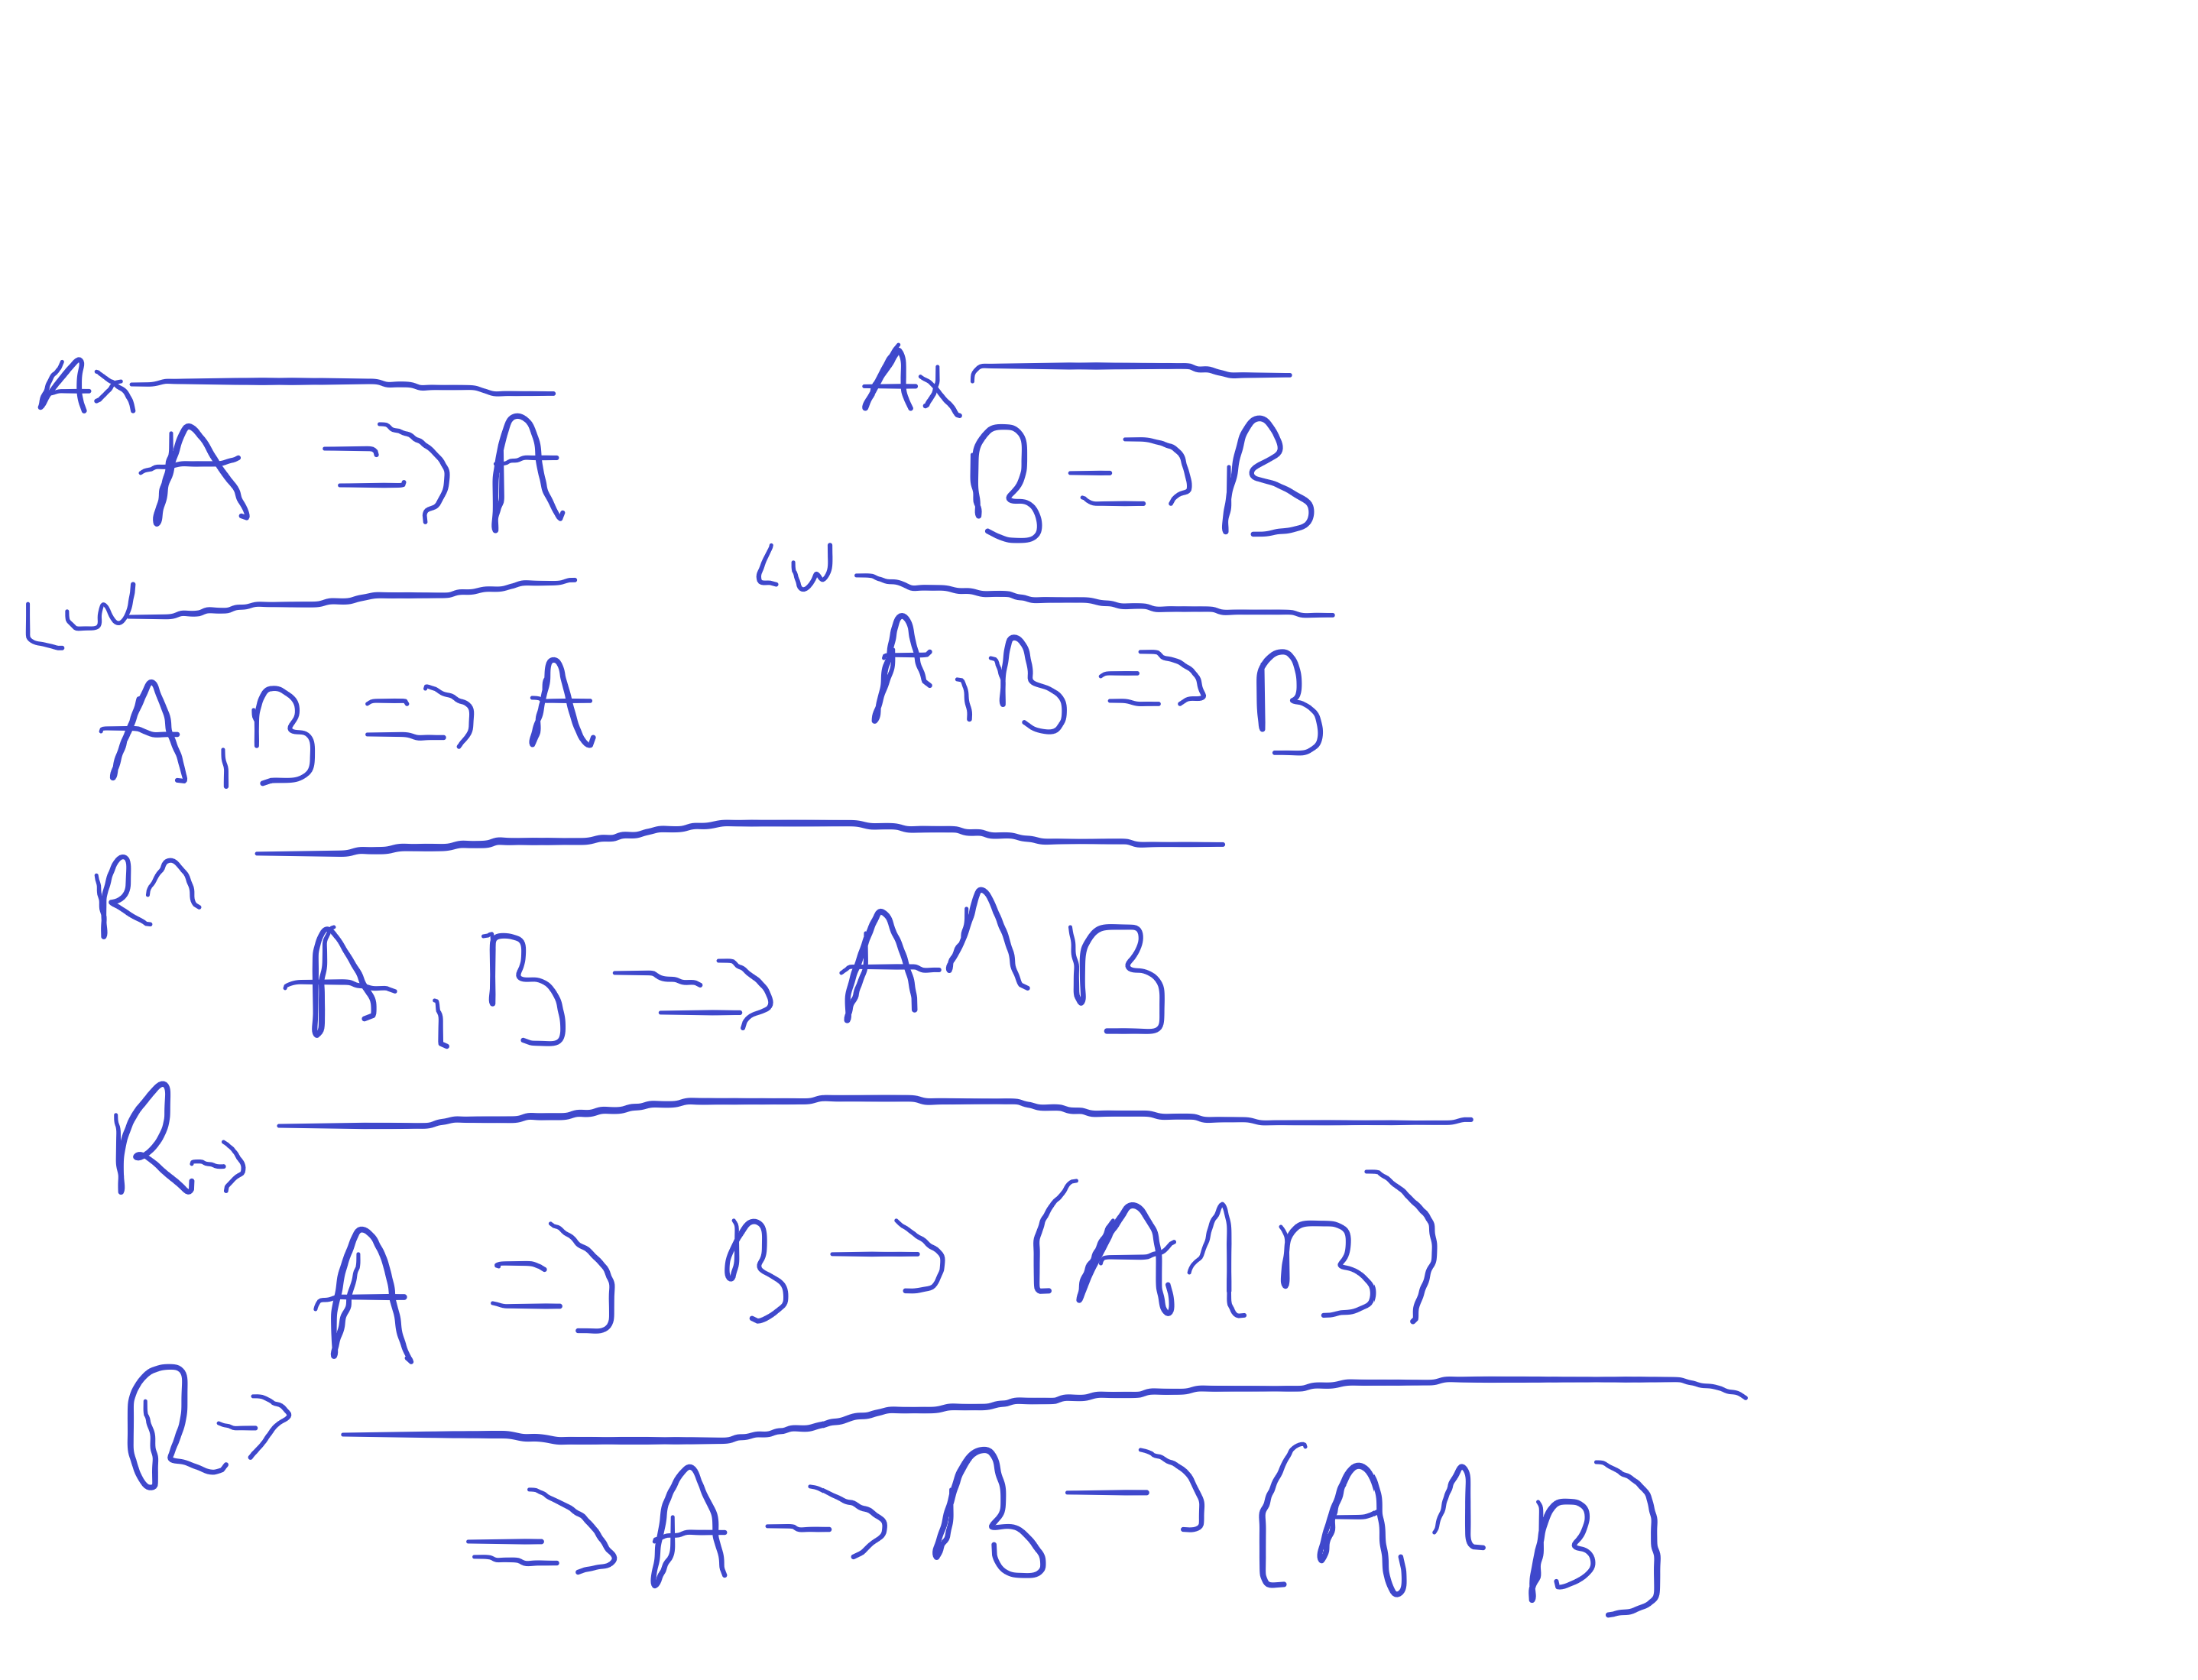 Ax Ax
A ⇒ A B ⇒ B
LW LW
A, B ⇒ A A, B ⇒ B
R∧
A, B ⇒ A ∧ B
R→
A ⇒ B → (A ∧ B)
R→
⇒ A → B → (A ∧ B)